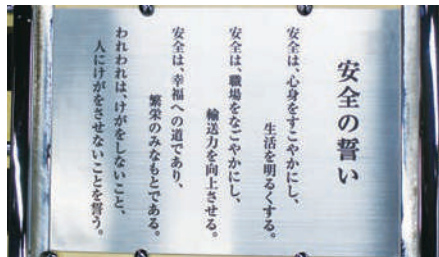 安全の誓い
安全は、心身をすこやかにし、
生活を明るくする。
安全は、職場をなごやかにし、
輸送力を向上させる。
安全は、幸福への道であり、
繁栄のみなもとである。
われわれは、けがをしないこと、
人にけがをさせないことを誓う。